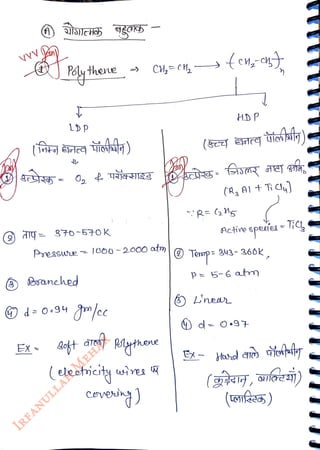 (A) योगात्मक बहुलक -
VVV Imp
① Polythene → CH₂=CH₂ → -(CH₂-CH₂)-n
LDP
(निम्न घनत्व पॉलीथीन)
① उत्प्रेरक = O₂ & परॉक्साइड
② ताप = 370-570K
Pressure = 1000-2000 atm
③ Branched
④ d = 0.94 gm/cc
Ex- Soft वाली Polythene
(electricity wires पर
covering)
HDP
(उच्च घनत्व पॉलीथीन)
① उत्प्रेरक = जिगलर नट्टा
(R₃Al + TiCl₄)
∵ R = C₂H₅
Active species = TiCl₃
② Temp = 343-360K,
P = 5-6 atm
③ Linear
④ d = 0.97
Ex- Hard वाले पॉलीथीन
(कूड़ेदान, बाल्टियां)
(प्लास्टिक)
IRFANULLAH MEHAR